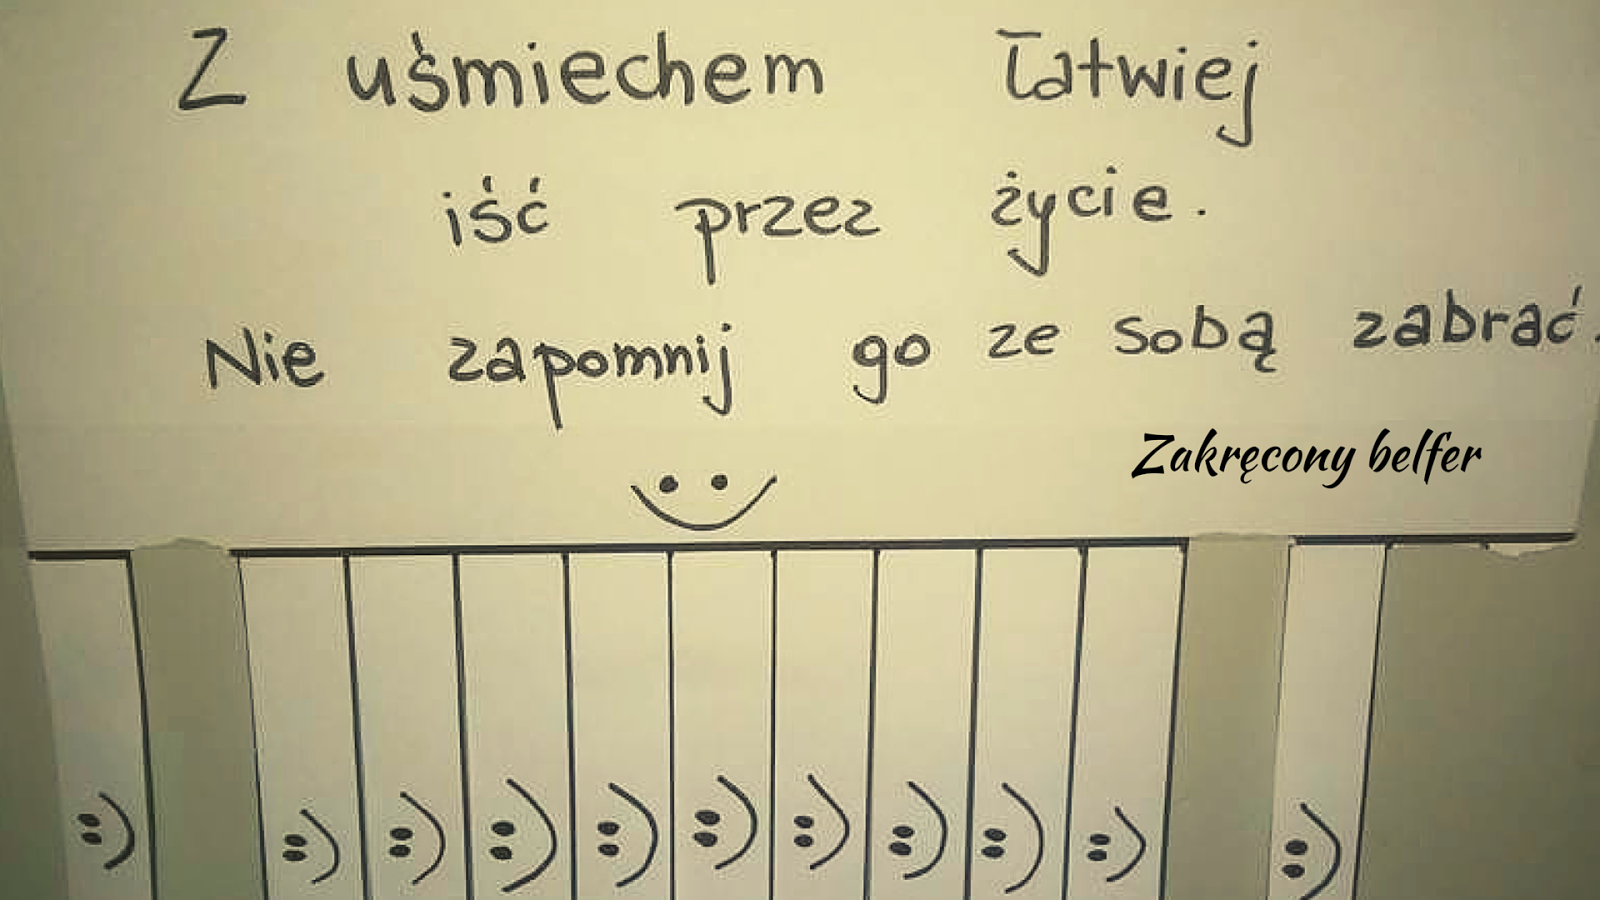 Z uśmiechem łatwiej
iść przez życie.
Nie zapomnij go ze sobą zabrać.
Zakręcony belfer